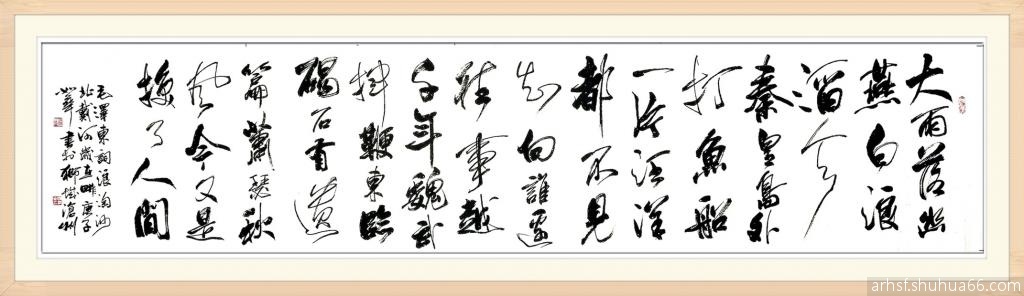 大雨落幽
燕白浪
滔天
秦皇島外
打魚船
一片汪洋
都不見
知向誰邊
往事越
千年魏武
揮鞭東臨
碣石有遺
篇蕭瑟秋
風今又是
換了人間
毛澤東詞浪淘沙
北戴河歲在時庚子
書於獅城滄州
arhsf.shuhua66.com